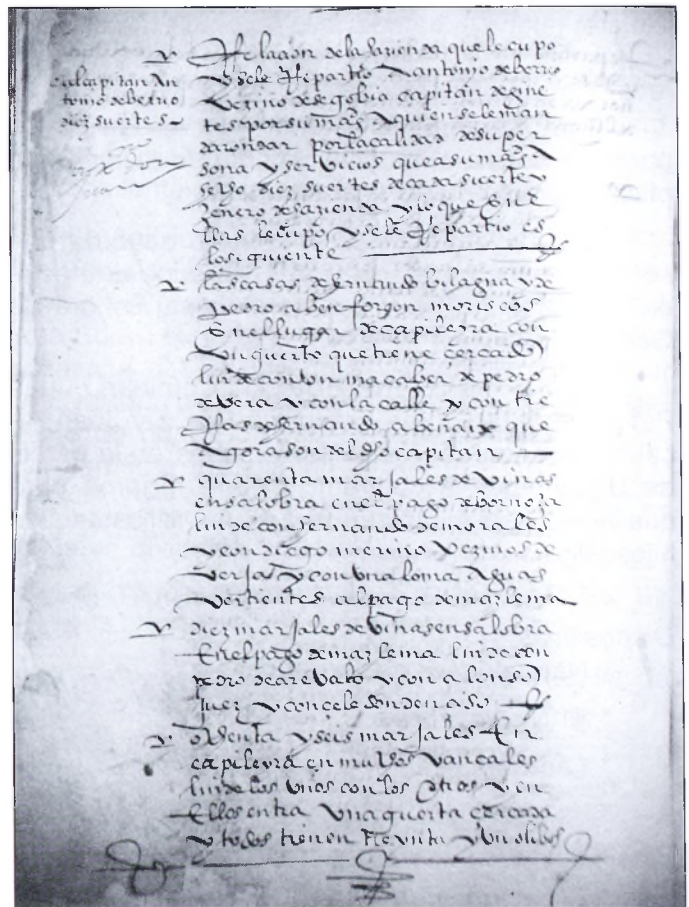 al capitan an
tonio de berrio
diez suertes
Relacion de la hazienda que le cupo
y se le Repartio a antonio de berrio
vezino de segobia capitan de gine
tes por su mag. a quien se le man
daron dar por la calidad de su per
sona y servicios que a su mag.
diez suertes de cada suerte y
genero de hazienda y lo que en e
llas le cupo y se le Repartio es
lo siguiente
las casas de hernando y de
pedro aben moriscos
en el lugar de capileyra con
un guerto que tiene cercado
linde con de pedro
de vera y con la calle y con tie
Ras de fernando que
agora son del dho capitan
quarenta marjales de viñas
en salobra en el pago de
linde con fernando de morales
y con diego merino vezinos de
verja y con una loma aguas
vertientes al pago de marlema
diez marjales de viñas en salobra
En el pago de marlema linde con
pedro de arebalo y con alonso
y con
ochenta y seis marjales En
capileyra en muchos vancales
linde los unos con los otros y en
Ellos entra una guerta cercada
y todos tienen treynta y un olibos